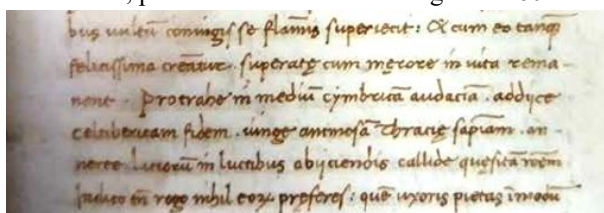 bus uultu coniugis se flammis superiecit: & cum eo tanq̃
felicissima creatur. superatę cum męrore in uita rema
nent. Protrahe in mediũ cymbricã audaciã. addijce
celtibericam fidem. iunge animosã Thracię sapiam. an
necte luctibus abijciendis callide quęsitã
Indico eñ rogo nihil eorꝝ pręferes: quẽ uxoris pietas in modũ